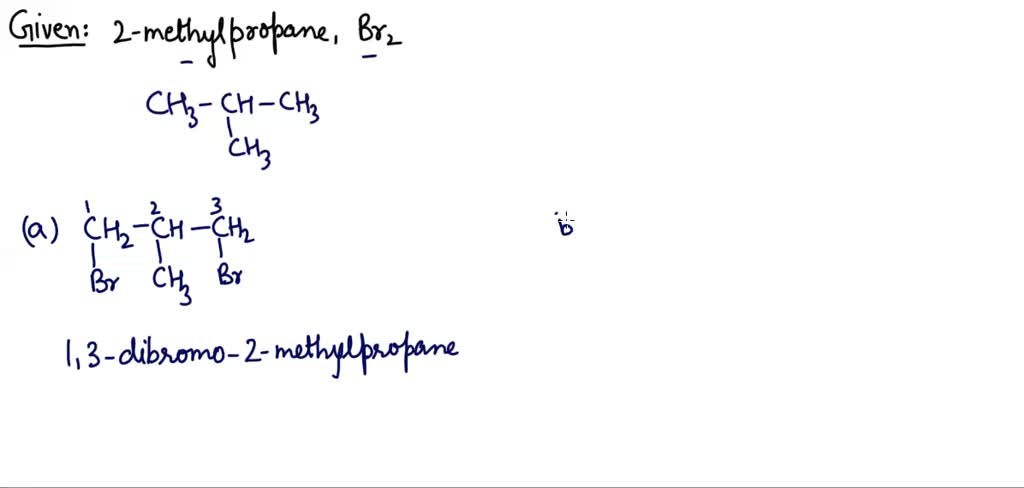 Given: 2-methylpropane, Br2
CH3-CH-CH3
CH3
(a) 1 2 3
CH2-CH-CH2
Br CH3 Br
b
1,3-dibromo-2-methylpropane